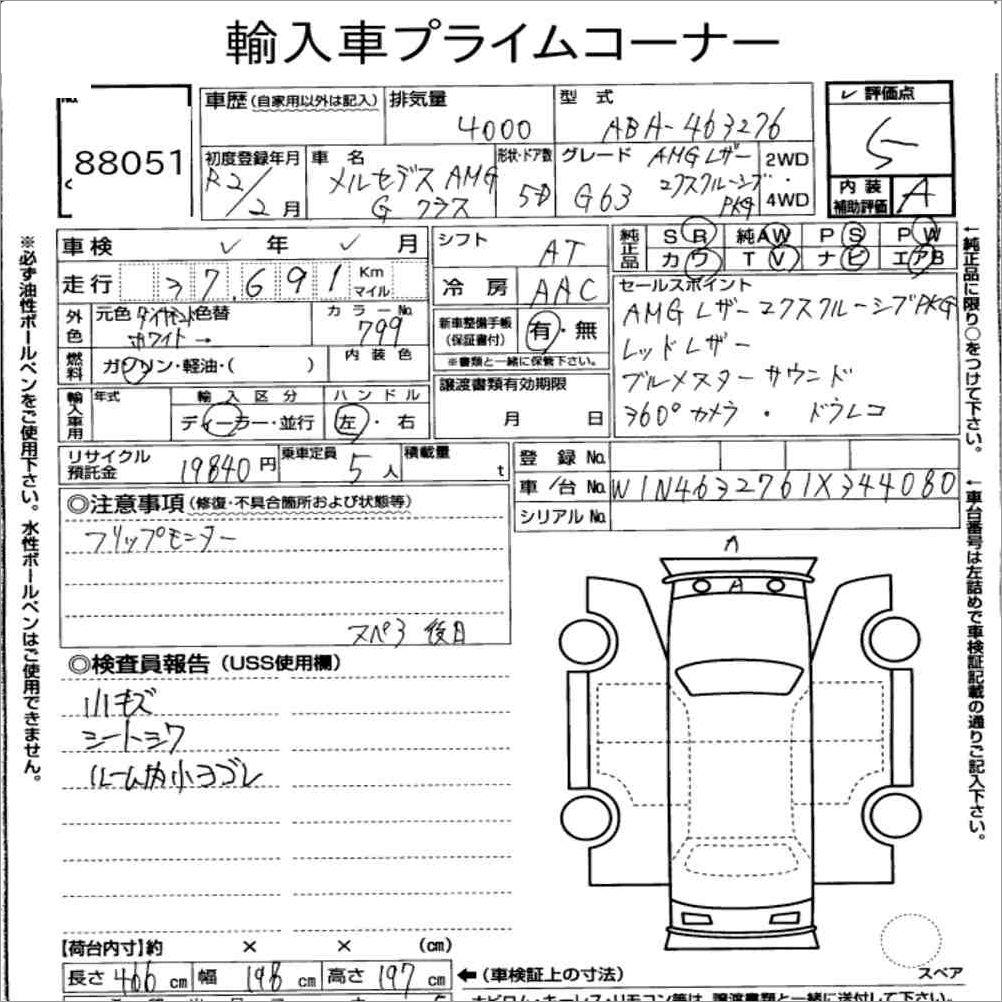 輸入車プライムコーナー
88051
車歴 (自家用以外は記入)
排気量
4000
型 式
ABA-463276
評価点
5
初度登録年月
R2/2月
車 名
メルセデスAMG
G クラス
形状・ドア数
5D
グレード
G63
AMG レザー
エクスクルーシブ
PKG
2WD
・
4WD
内 装
補助評価
A
車検 年 月
シフト
AT
純正品
SR 純AW PS PW
カワ TV ナビ エアB
走行 37,691 Km
マイル
冷 房
AAC
セールスポイント
AMG レザーエクスクルーシブPKG
レッドレザー
ブルメスターサウンド
360°カメラ ・ ドラレコ
外色
元色 ダイヤモンド 色替
ホワイト →
カラーNo.
799
新車整備手帳
(保証書付)
有・無
※書類と一緒に保管下さい。
燃料
ガソリン・軽油・( )
内 装 色
譲渡書類有効期限
月 日
輸入車用
年式
輸 入 区 分
ディーラー・並行
ハ ン ド ル
左・右
リサイクル
預託金
19840円
乗車定員
5人
積載量
t
登 録 No.
車 / 台 No.
W1N4632761X344080
シリアル No.
◎注意事項 (修復・不具合箇所および状態等)
フリップモニター
スペ3 後日
◎検査員報告 (USS使用欄)
小キズ
シートシワ
ルーム内小ヨゴレ
A
A
【荷台内寸】約 × × (cm)
長さ 466 cm 幅 198 cm 高さ 197 cm
←(車検証上の寸法)
スペア
※必ず油性ボールペンをご使用下さい。水性ボールペンはご使用できません。
←純正品に限り○をつけて下さい。
←車台番号は左詰めで車検証記載の通りご記入下さい。